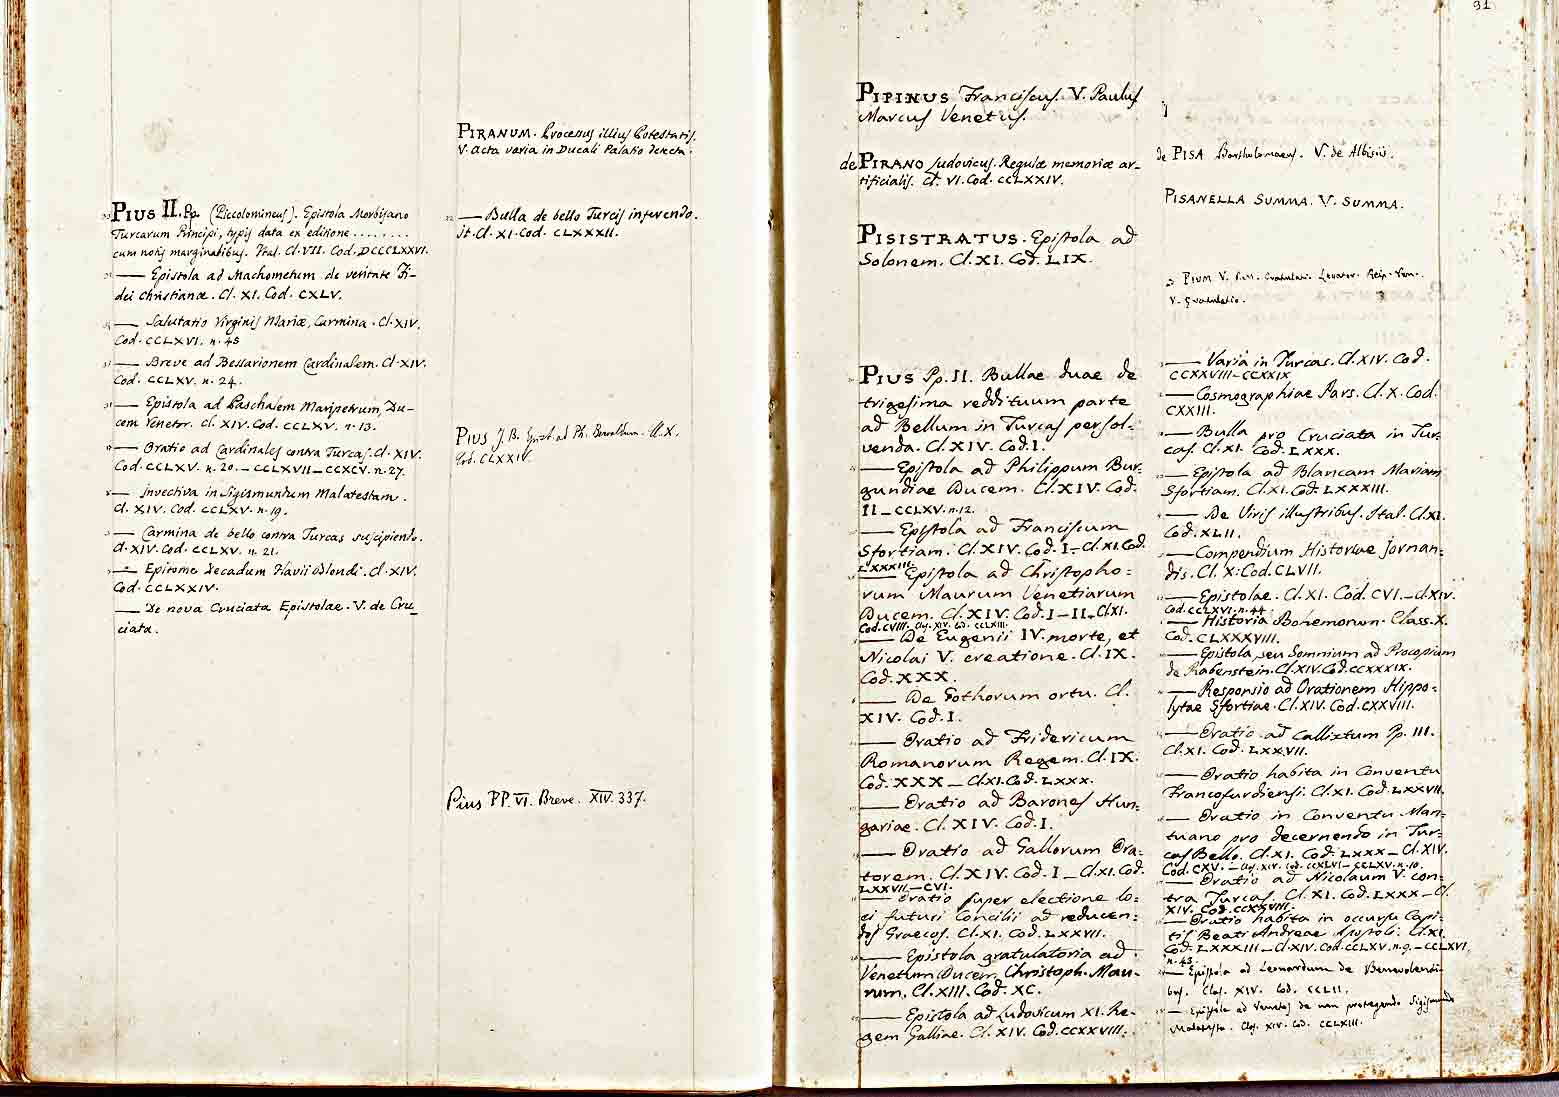 PIUS II. Pp. (Piccolomineus). Epistola Morbisano
Turcarum Principi, typis data ex editione ........
cum notis marginalibus. Ital. Cl. VII. Cod. DCCCLXXVI.
— Epistola ad Machometum de veritate Fi-
dei Christianæ. Cl. XI. Cod. CXLV.
— Salutatio Virginis Mariæ, Carmina. Cl. XIV.
Cod. CCLXVI. n. 45
— Breve ad Bessarionem Cardinalem. Cl. XIV.
Cod. CCLXV. n. 24.
— Epistola ad Paschalem Maripetrum, Du-
cem Venetor. Cl. XIV. Cod. CCLXV. n. 13.
— Oratio ad Cardinales contra Turcas. Cl. XIV.
Cod. CCLXV. n. 20. — CCLXVII — CCXCV. n. 27.
— Invectiva in Sigismundum Malatestam.
Cl. XIV. Cod. CCLXV. n. 19.
— Carmina de bello contra Turcas suscipiendo.
Cl. XIV. Cod. CCLXV. n. 21.
— Epitome Decadum Flavii Blondi. Cl. XIV.
Cod. CCLXXIV.
— De nova Cruciata Epistolae. V. de Cru-
ciata.
PIRANUM. Processus illius Potestatis.
V. Acta varia in Ducali Palatio detecta.
— Bulla de bello Turcis inferendo.
It. Cl. XI. Cod. CLXXXII.
Pius J. B. Epist. ad Ph. Beroaldum. Cl. X.
Cod. CLXXIV.
Pius PP. VI. Breve. XIV. 337.
91
PIPINUS Franciscus V. Paulus
Marcus Venetus.
de PIRANO Ludovicus. Regulæ memoriæ ar-
tificialis. Cl. VI. Cod. CCLXXIV.
PISISTRATUS. Epistola ad
Solonem. Cl. XI. Cod. LIX.
PIUS Pp. II. Bullae duae de
trigesima reddituum parte
ad Bellum in Turcas persol-
venda. Cl. XIV. Cod. I.
— Epistola ad Philippum Bur-
gundiae Ducem. Cl. XIV. Cod.
II — CCLXV. n. 12.
— Epistola ad Franciscum
Sfortiam. Cl. XIV. Cod. I — Cl. XI. Cod.
LXXXIII.
— Epistola ad Christopho-
rum Maurum Venetiarum
Ducem. Cl. XIV. Cod. I — II — Cl. XI.
Cod. CVIII. Cla. XIV. Cod. CCLXIII.
— De Eugenii IV. morte, et
Nicolai V. creatione. Cl. IX.
Cod. XXX.
— De Gothorum ortu. Cl.
XIV. Cod. I.
— Oratio ad Fridericum
Romanorum Regem. Cl. IX.
Cod. XXX — Cl. XI. Cod. LXXX.
— Oratio ad Barones Hun-
gariae. Cl. XIV. Cod. I.
— Oratio ad Gallorum Ora-
torem. Cl. XIV. Cod. I — Cl. XI. Cod.
LXXVII — CVI.
— Oratio super electione lo-
ci futuri Concilii ad reducen-
dos Graecos. Cl. XI. Cod. LXXVII.
— Epistola gratulatoria ad
Venetum Ducem Christoph. Mau-
rum. Cl. XIII. Cod. XC.
— Epistola ad Ludovicum XI. Re-
gem Galliae. Cl. XIV. Cod. CCXXVIII.
de PISA Bartholomaeus. V. de Albisiis.
PISANELLA SUMMA. V. SUMMA.
PIUM V. Gratulatio.
V. Gratulatio.
— Varia in Turcas. Cl. XIV. Cod.
CCXXVIII — CCXXIX
— Cosmographiae Pars. Cl. X. Cod.
CXXIII.
— Bulla pro Cruciata in Tur-
cas. Cl. XI. Cod. LXXX.
— Epistola ad Blancam Mariam
Sfortiam. Cl. XI. Cod. LXXXIII.
— De Viris illustribus. Ital. Cl. XI.
Cod. XLII.
— Compendium Historiae Jornan-
dis. Cl. X. Cod. CLVII.
— Epistolae. Cl. XI. Cod. CVI — Cl. XIV.
Cod. CCLXVI. n. 44.
— Historia Bohemorum. Class. X.
Cod. CLXXXVIII.
— Epistola, seu Somnium ad Procopium
de Rabenstein. Cl. XIV. Cod. CCXXXIX.
— Responsio ad Orationem Hippo-
lytae Sfortiae. Cl. XIV. Cod. CXXVIII.
— Oratio ad Callixtum Pp. III.
Cl. XI. Cod. LXXVII.
— Oratio habita in Conventu
Francofurdiensi. Cl. XI. Cod. LXXVII.
— Oratio in Conventu Man-
tuano pro decernendo in Tur-
cas Bello. Cl. XI. Cod. LXXX — Cl. XIV.
Cod. CXV. — Cla. XIV. Cod. CCXLVI — CCLXV. n. 10.
— Oratio ad Nicolaum V. con-
tra Turcas. Cl. XI. Cod. LXXX — Cl.
XIV. Cod. CCXXVIII.
— Oratio habita in occursu Capi-
tis Beati Andreae Apostoli. Cl. XI.
Cod. LXXXIII — Cl. XIV. Cod. CCLXV. n. 9. — CCLXVI.
n. 43.
— Epistola ad Leonardum de Benevolenti-
bus. Clas. XIV. Cod. CCLII.
— Epistola ad Venetos de non protegendo Sigismundo
Malatesta. Clas. XIV. Cod. CCLXIII.